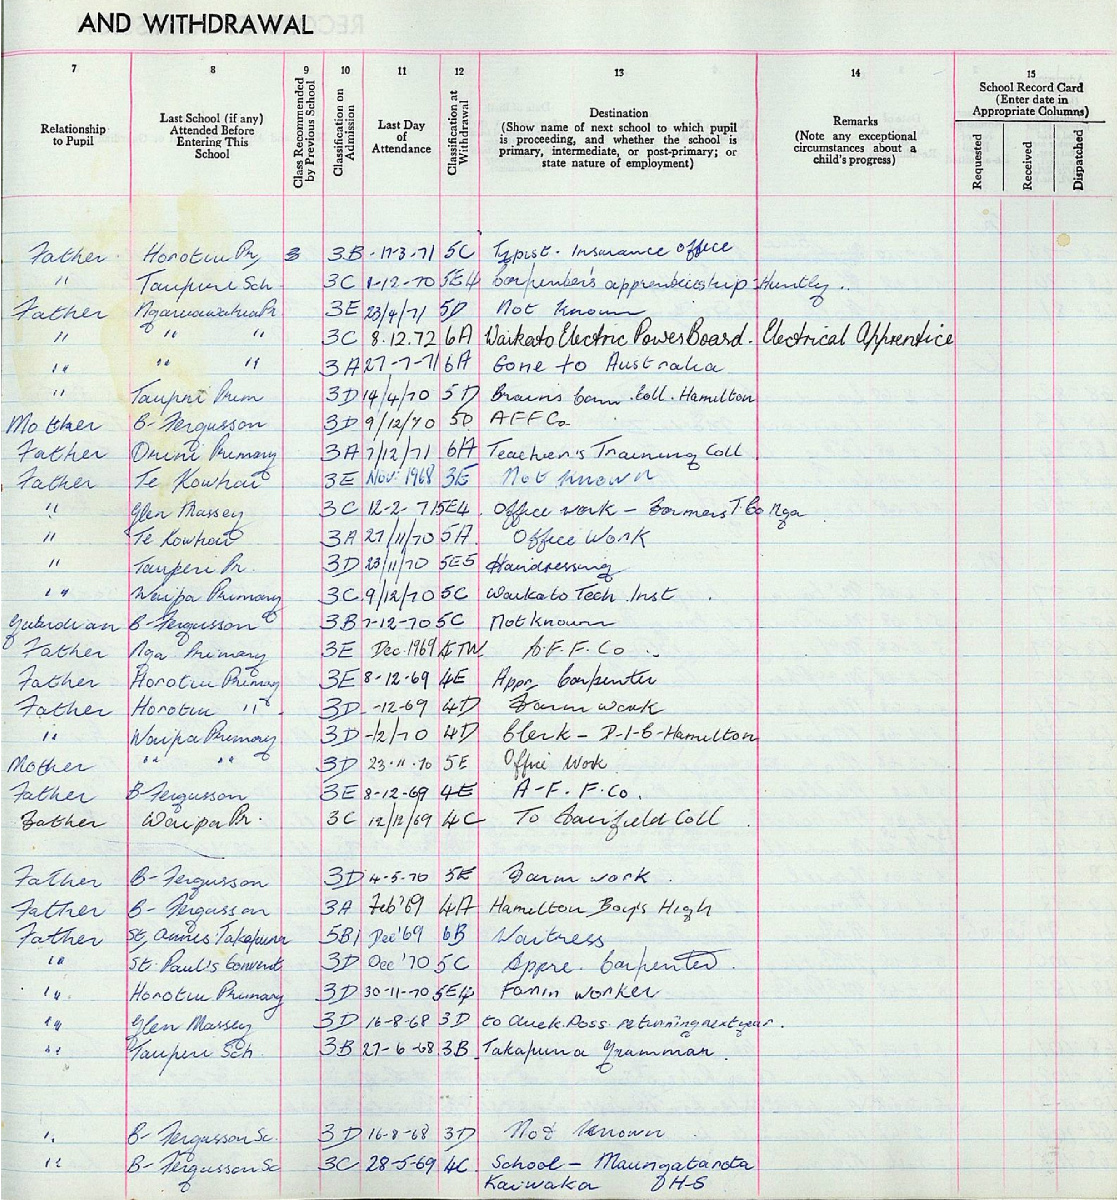 AND WITHDRAWAL
7 8 9 10 11 12 13 14 15
Relationship to Pupil
Last School (if any) Attended Before Entering This School
Class Recommended by Previous School
Classification on Admission
Last Day of Attendance
Classification at Withdrawal
Destination (Show name of next school to which pupil is proceeding, and whether the school is primary, intermediate, or post-primary; or state nature of employment)
Remarks (Note any exceptional circumstances about a child's progress)
School Record Card (Enter date in Appropriate Columns)
Requested Received Dispatched
Father Horotiu Pr, 3 3B -17-3-71 5C Typist - Insurance office
" Taupiri Sch 3C 1-12-70 5E4 Carpenter's apprenticeship - Huntly.
Father Ngaruawahia Pr 3E 23/4/71 5D Not Known
" " " 3C 8.12.72 6A Waikato Electric Power Board. Electrical Apprentice
" " " 3A 27-7-71 6A Gone to Australia
" Taupiri Prim 3D 14/4/70 5D Brains Coll. Hamilton
Mother B-Fergusson 3D 9/12/70 5D AFFCo
Father Orini Primary 3A 7/12/71 6A Teacher's Training Coll
Father Te Kowhai 3E Nov. 1968 3E Not Known
" Glen Massey 3C 12-2-71 5E4. Office work - Farmers T. Co Nga
" Te Kowhai 3A 27/11/70 5A. Office Work
" Taupiri Pr. 3D 23/11/70 5E5 Hairdressing
" Waipa Primary 3C 9/12/70 5C Waikato Tech. Inst.
Guardian B-Fergusson 3B 7-12-70 5C Not Known
Father Nga Primary 3E Dec 1969 4TW. A.F.F.Co.
Father Horotiu Primary 3E 8-12-69 4E Appr. Carpenter
Father Horotiu " 3D -12-69 4D Farm work
" Waipa Primary 3D -12/70 4D Clerk - D-I-C-Hamilton
Mother " " 3D 23-11-70 5E Office Work
Father B-Fergusson 3E 8-12-69 4E A-F.F.Co.
Father Waipa Pr. 3C 12/12/69 4C To Fairfield Coll
Father B-Fergusson 3D 4-5-70 5E Farm work.
Father B-Fergusson 3A Feb '69 4A Hamilton Boy's High
Father St, Annes Takapuna 5B1 Dec '69 6B Waitress
" St. Paul's Convent 3D Dec '70 5C Appre. Carpenter.
" Horotiu Primary 3D 30-11-70 5E4 Farm worker
" Glen Massey 3D 16-8-68 3D to Auck. Poss. returning next year.
" Taupiri Sch. 3B 27-6-68 3B Takapuna Grammar.
" B-Fergusson Sc. 3D 16-8-68 3D Not Known
" B-Fergusson Sc 3C 28-5-69 4C. School - Maungatarota
Kaiwaka DH-S